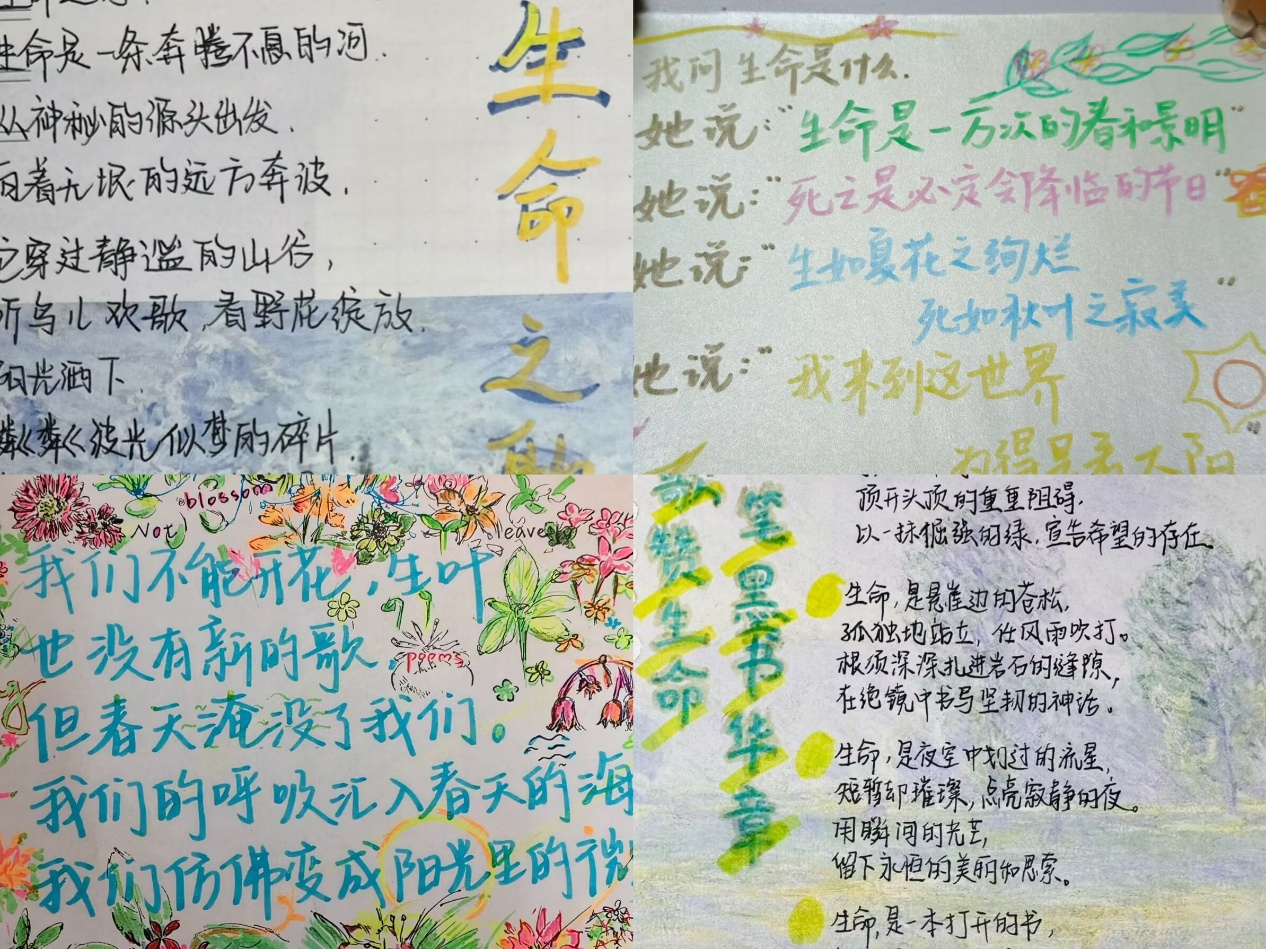 生命是一条奔腾不息的河.
从神秘的源头出发.
向着无垠的远方奔波,
它穿过静谧的山谷,
听鸟儿欢歌,看野花绽放.
阳光洒下.
粼粼波光似梦的碎片.
生命之歌
我问生命是什么.
她说:"生命是一万次的春和景明"
她说:"死亡是必定会降临的节日"
她说:"生如夏花之绚烂
死如秋叶之寂美"
她说:"我来到这世界
为得是看太阳"
blossom
Not
leave
我们不能开花,生叶
也没有新的歌,
poems
但春天淹没了我们。
我们的呼吸汇入春天的海
我们仿佛变成阳光里的微
歌赞生命
笔墨书华章
顶开头顶的重重阻碍,
以一抹倔强的绿,宣告希望的存在。
生命,是悬崖边的苍松,
孤独地站立,任风雨吹打。
根须深深扎进岩石的缝隙,
在绝境中书写坚韧的神话。
生命,是夜空中划过的流星,
短暂却璀璨,点亮寂静的夜。
用瞬间的光芒,
留下永恒的美丽和思索。
生命,是一本打开的书,